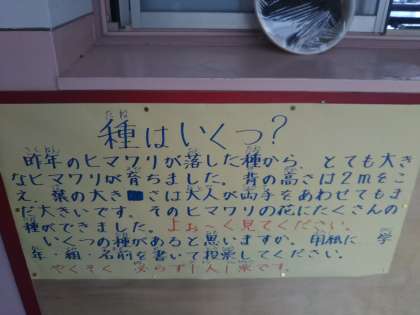 種はいくつ?
昨年のヒマワリが落した種から、とても大き
なヒマワリが育ちました。背の高さは2mをこ
え、葉の大きさは大人が両手をあわせてもま
だ大きいです。そのヒマワリの花にたくさんの
種ができました。よぉ~く見てください。
いくつの種があると思いますか。用紙に、学
年・組・名前を書いて投票してください。
やくそく 必らず1人1票です。